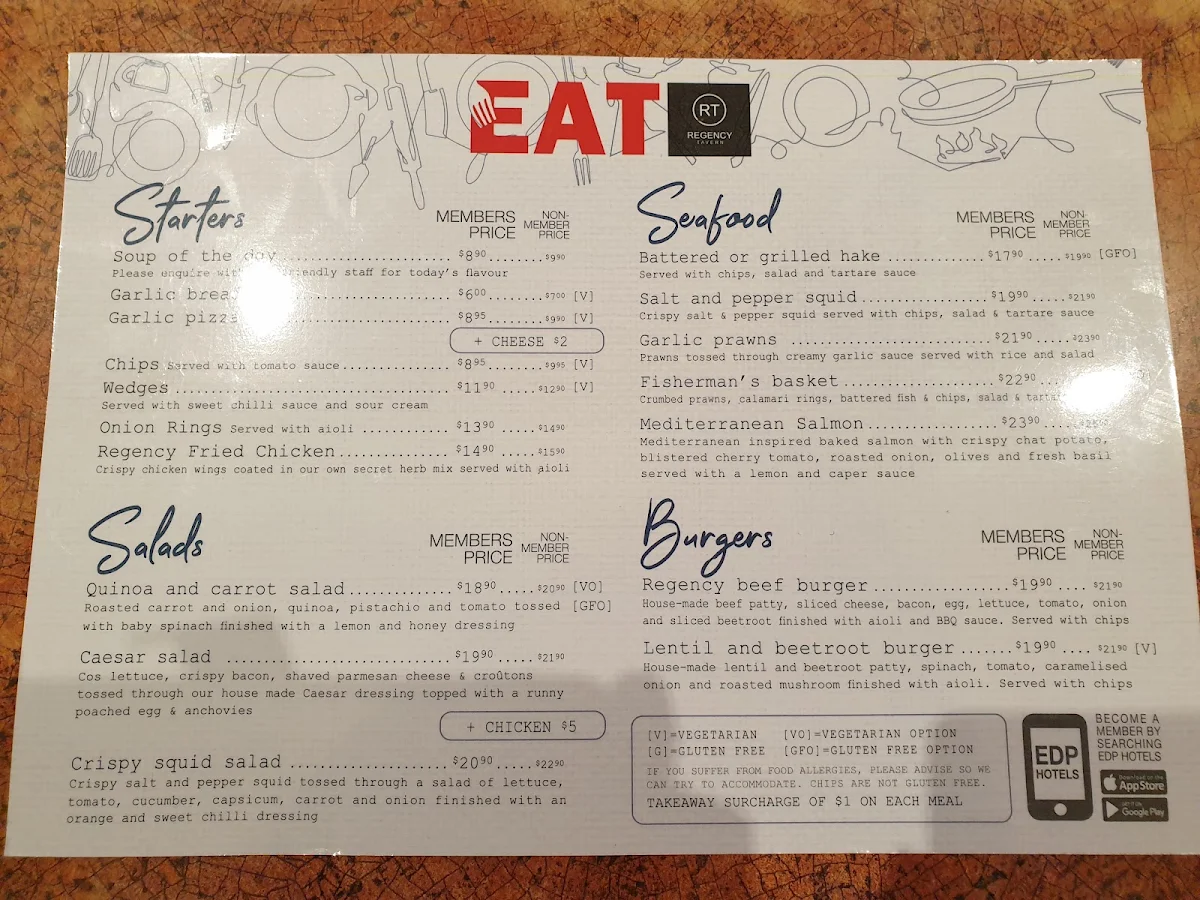 EAT
RT
REGENCY
TAVERN
Starters
MEMBERS PRICE
NON-MEMBER PRICE
Soup of the day $8⁹⁰ $9⁹⁰
Please enquire friendly staff for today's flavour
Garlic $6⁰⁰ $7⁰⁰ [V]
Garlic pizza $8⁹⁵ $9⁹⁰ [V]
+ CHEESE $2
Chips Served with tomato sauce $8⁹⁵ $9⁹⁵ [V]
Wedges $11⁹⁰ $12⁹⁰ [V]
Served with sweet chilli sauce and sour cream
Onion Rings Served with aioli $13⁹⁰ $14⁹⁰
Regency Fried Chicken $14⁹⁰ $15⁹⁰
Crispy chicken wings coated in our own secret herb mix served with aioli
Salads
MEMBERS PRICE
NON-MEMBER PRICE
Quinoa and carrot salad $18⁹⁰ $20⁹⁰ [VO]
Roasted carrot and onion, quinoa, pistachio and tomato tossed [GFO]
with baby spinach finished with a lemon and honey dressing
Caesar salad $19⁹⁰ $21⁹⁰
Cos lettuce, crispy bacon, shaved parmesan cheese & croûtons
tossed through our house made Caesar dressing topped with a runny
poached egg & anchovies
+ CHICKEN $5
Crispy squid salad $20⁹⁰ $22⁹⁰
Crispy salt and pepper squid tossed through a salad of lettuce,
tomato, cucumber, capsicum, carrot and onion finished with an
orange and sweet chilli dressing
Seafood
MEMBERS PRICE
NON-MEMBER PRICE
Battered or grilled hake $17⁹⁰ $19⁹⁰ [GFO]
Served with chips, salad and tartare sauce
Salt and pepper squid $19⁹⁰ $21⁹⁰
Crispy salt & pepper squid served with chips, salad & tartare sauce
Garlic prawns $21⁹⁰ $23⁹⁰
Prawns tossed through creamy garlic sauce served with rice and salad
Fisherman's basket $22⁹⁰
Crumbed prawns, calamari rings, battered fish & chips, salad &
Mediterranean Salmon $23⁹⁰
Mediterranean inspired baked salmon with crispy chat potato,
blistered cherry tomato, roasted onion, olives and fresh basil
served with a lemon and caper sauce
Burgers
MEMBERS PRICE
NON-MEMBER PRICE
Regency beef burger $19⁹⁰ $21⁹⁰
House-made beef patty, sliced cheese, bacon, egg, lettuce, tomato, onion
and sliced beetroot finished with aioli and BBQ sauce. Served with chips
Lentil and beetroot burger $19⁹⁰ $21⁹⁰ [V]
House-made lentil and beetroot patty, spinach, tomato, caramelised
onion and roasted mushroom finished with aioli. Served with chips
[V]=VEGETARIAN [VO]=VEGETARIAN OPTION
[G]=GLUTEN FREE [GFO]=GLUTEN FREE OPTION
IF YOU SUFFER FROM FOOD ALLERGIES, PLEASE ADVISE SO WE
CAN TRY TO ACCOMMODATE. CHIPS ARE NOT GLUTEN FREE.
TAKEAWAY SURCHARGE OF $1 ON EACH MEAL
EDP
HOTELS
BECOME A
MEMBER BY
SEARCHING
EDP HOTELS
Download on the
App Store
GET IT ON
Google Play